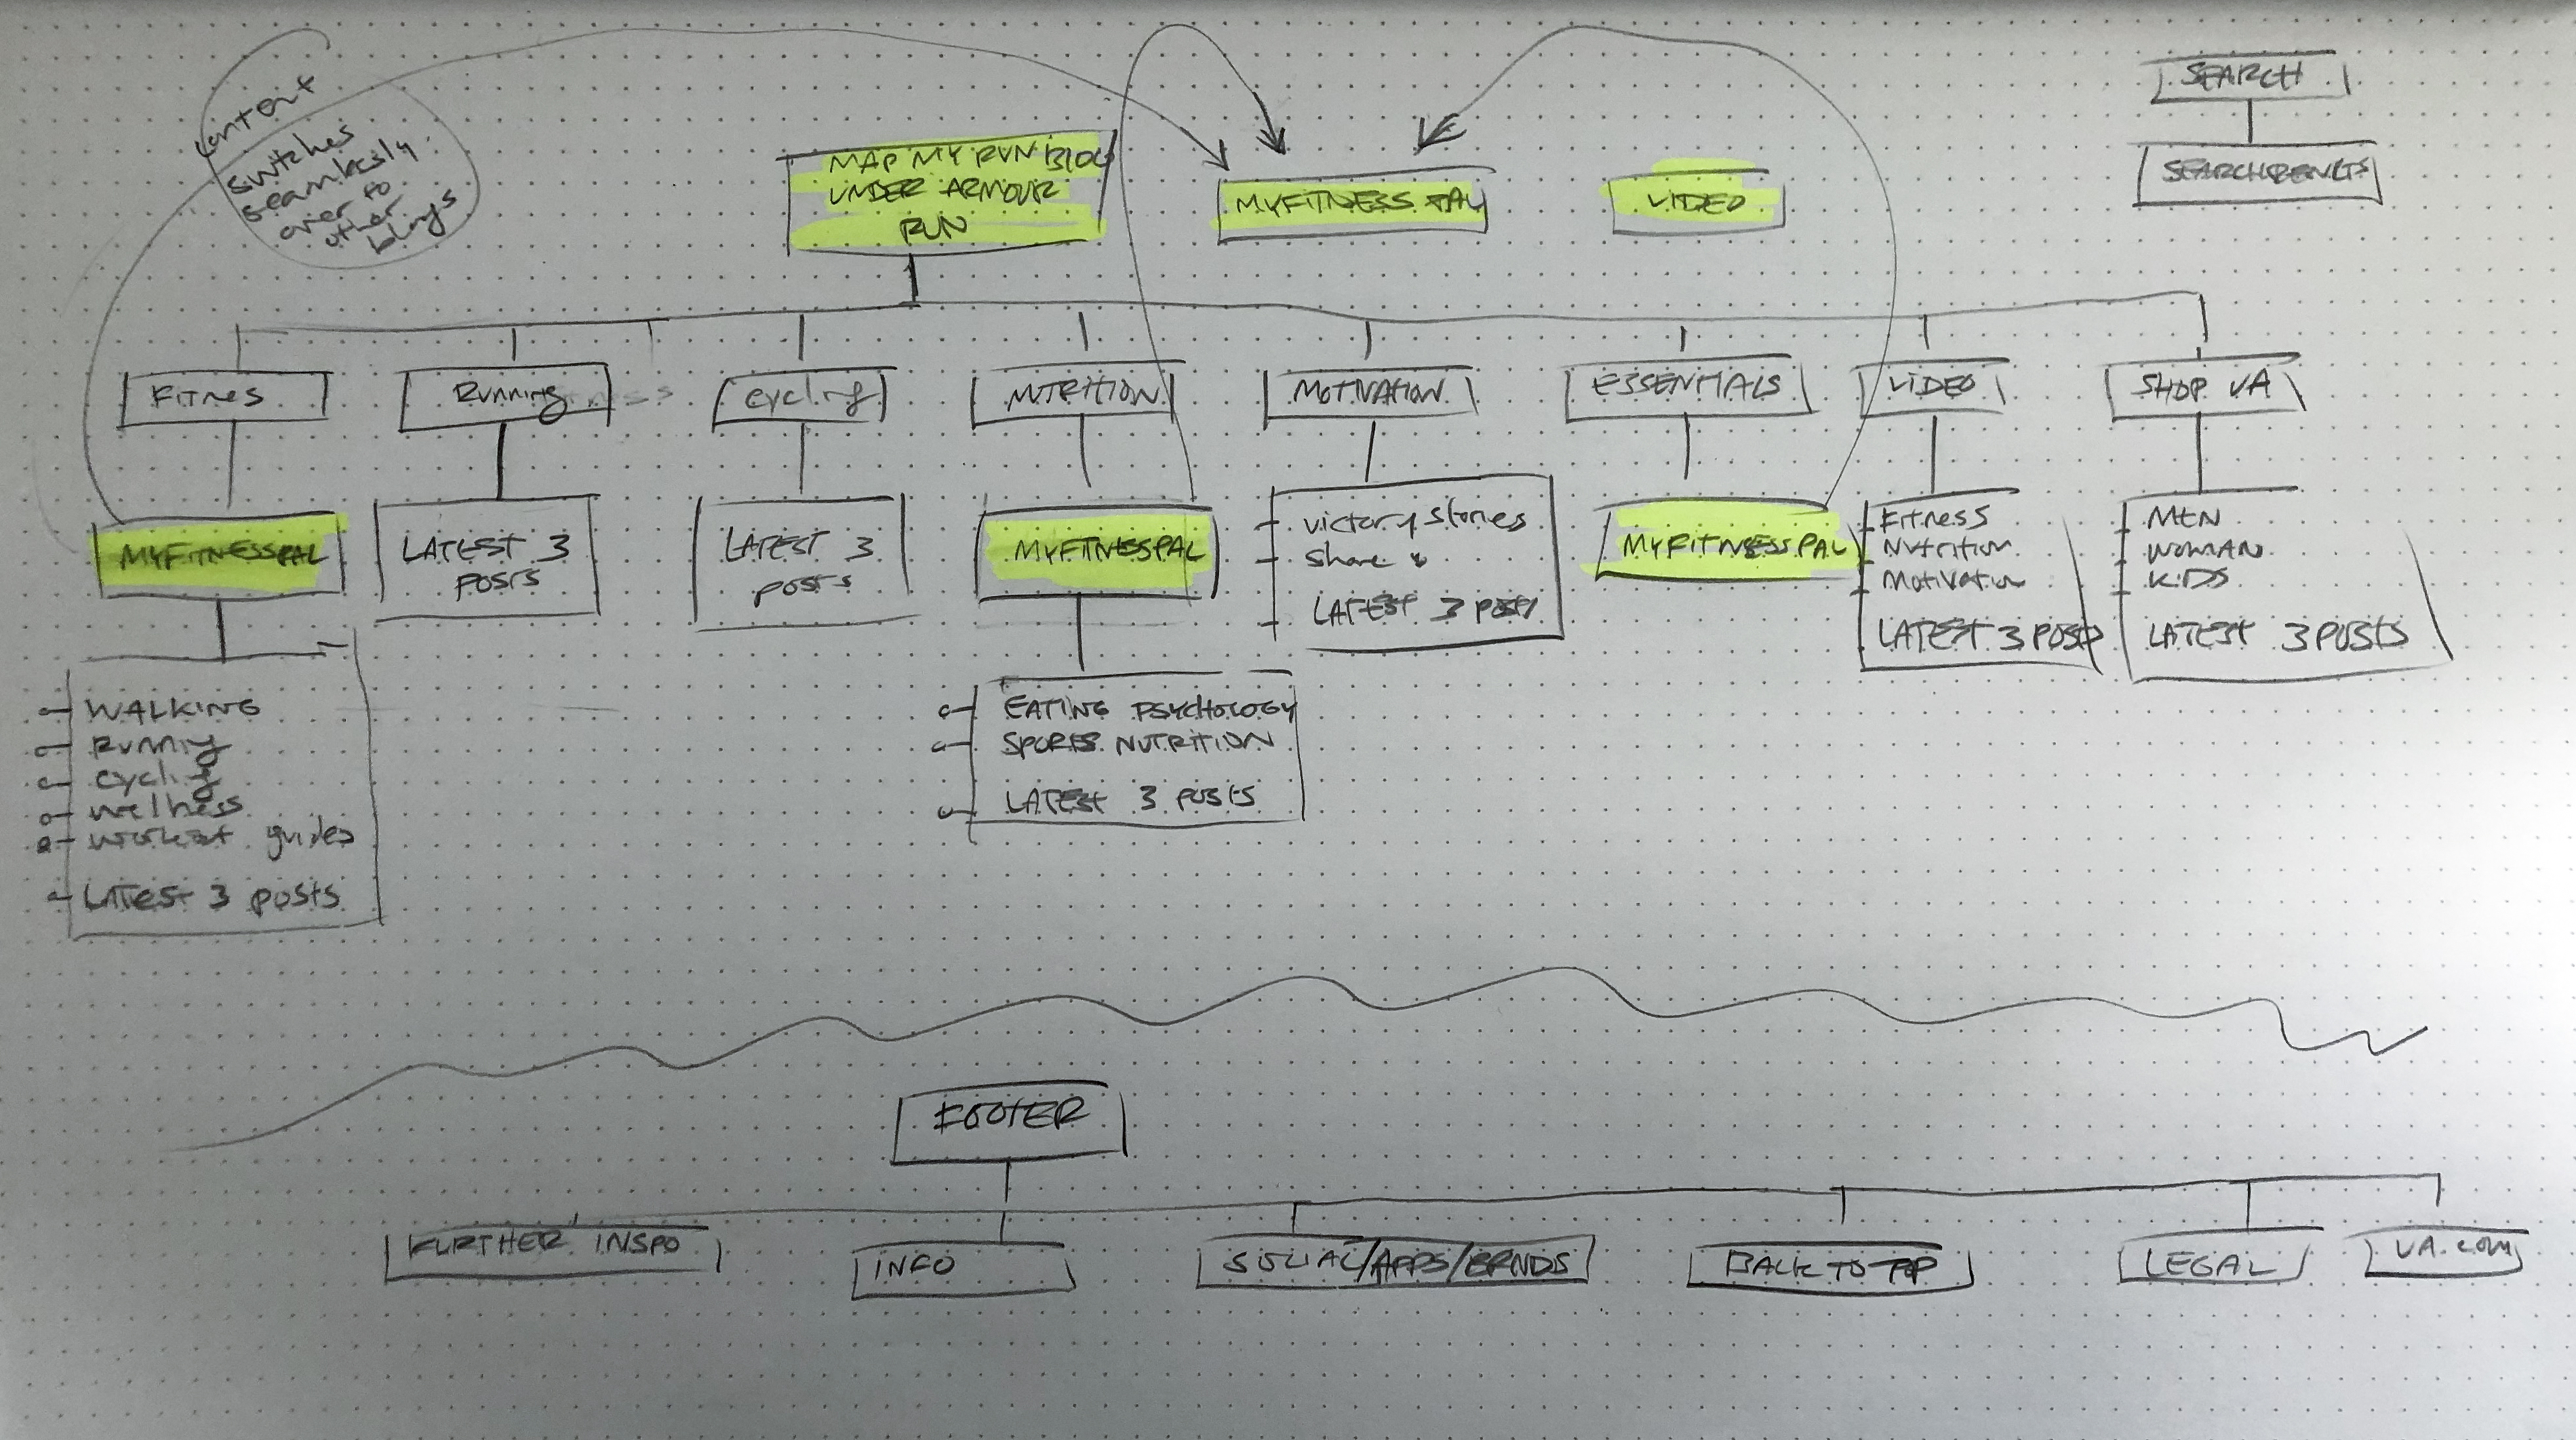 content
switches
seamlessly
over to
other
blogs
MAP MY RUN BLOG
UNDER ARMOUR
RUN
MYFITNESS PAL
VIDEO
SEARCH
SEARCH RESULTS
FITNES
RUNNING
cycling
NUTRITION
MOTIVATION
ESSENTIALS
VIDEO
SHOP UA
MYFITNESSPAL
LATEST 3
POSTS
LATEST 3
posts
MYFITNESPAL
victory stories
share
LATEST 3 POSTS
MYFITNESSPAL
FITNESS
NUTRITION
MOTIVATION
LATEST 3 POSTS
MEN
WOMAN
KIDS
LATEST 3 POSTS
WALKING
RUNNING
cycling
wellness
workout guides
LATEST 3 posts
EATING PSYCHOLOGY
SPORTS NUTRITION
LATEST 3 POSTS
FOOTER
FURTHER INSPO
INFO
SOCIAL/APPS/BRNDS
BACK TO TOP
LEGAL
UA.COM